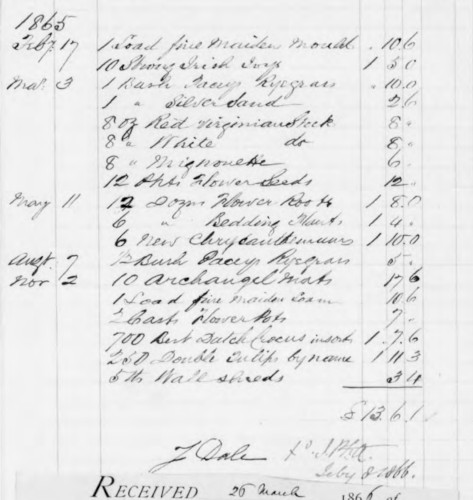 1865
Feby 17 1 Load fine Maiden Mould . 10.6
10 Strong Irish Ivys 1 5.0
Mar 3 1 Bush Paceys Ryegrass . 10.0
1 " Silver Sand 2 6
8 oz Red Virginian Stock 8 "
8 " White do 8 "
8 " Mignonette 6 "
12 Pkts Flower Seeds 12 "
May 11 12 Dozn Flower Roots 1 8.0
6 " Bedding Plants 1 4 "
6 New Chrysanthemums 1 10.0
Augt 7 ½ Bush Paceys Ryegrass 5 "
Nov 2 10 Archangel Mats 17 6
1 Load fine Maiden Loam 10 6
2 Casts Flower Pots 7 "
700 Best Dutch Crocus in sorts 1 . 7 . 6
250 Double Tulips by name 1 11.3
5 lbs Wall shreds 3 4
£ 13.6.1
J Dale
Feby 8 1866.
RECEIVED 26 March 1866 of